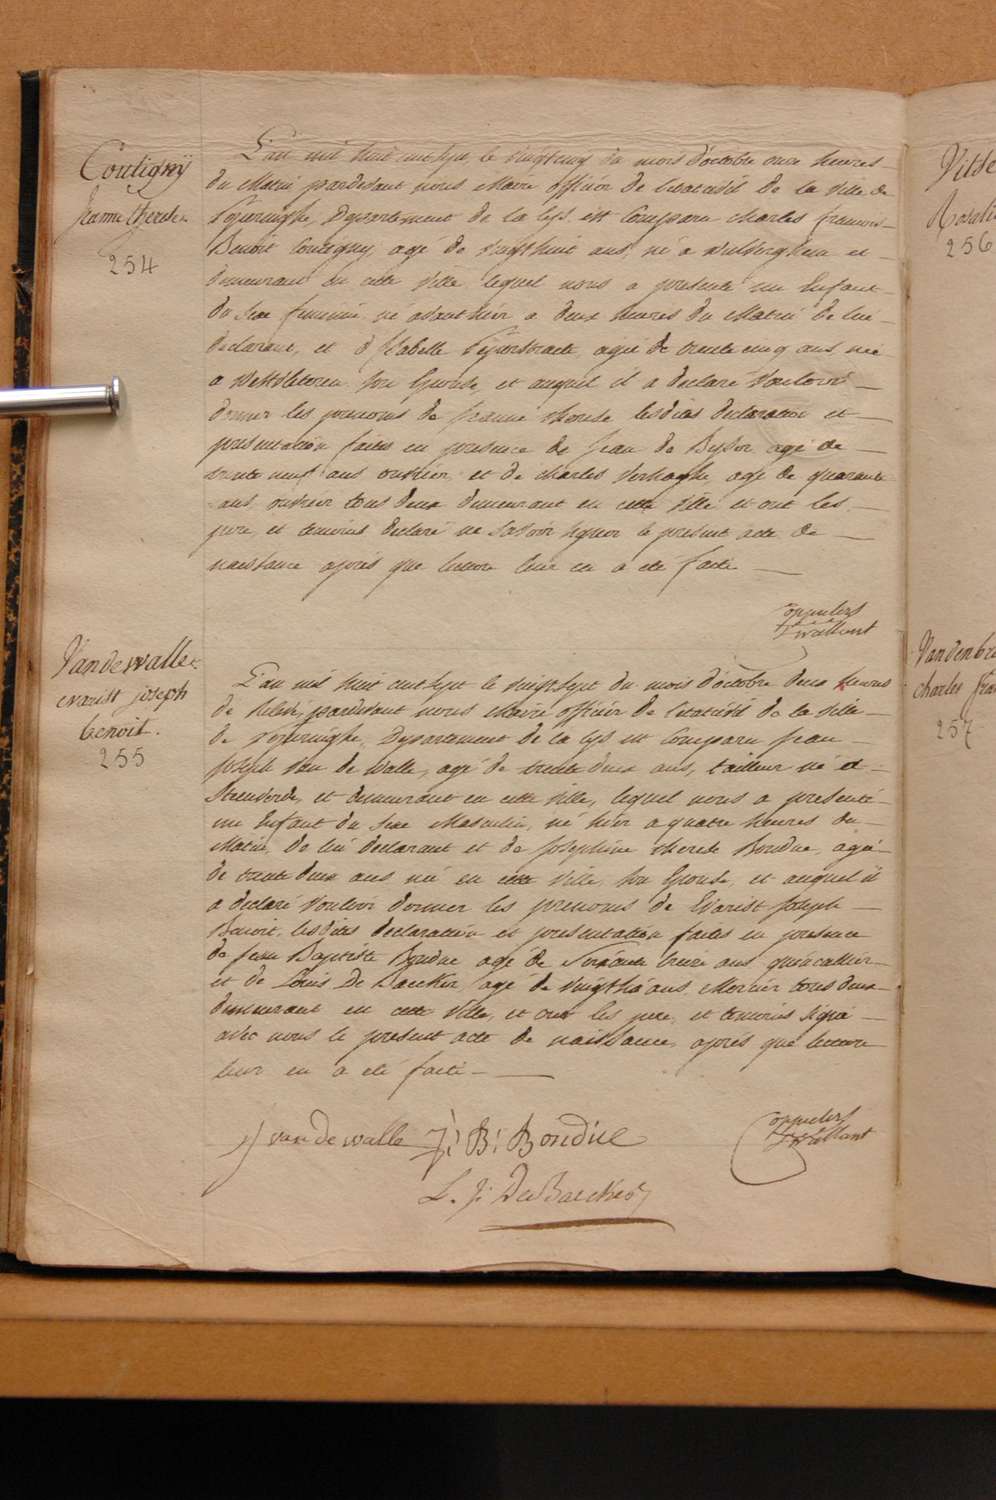 Coutigny
Jeanne Therese
254
L'an mil huit cent sept, le vingt cinq du mois d'octobre onze heures
du Matin pardevant nous Maire officier de l'etat civil de la ville de
Poperinghe, Departement de la Lys, est Comparu Charles francois
Benoit Coutigny, agé de vingt huit ans, né a Wulverghem et
demeurant en cette Ville lequel nous a presenté un Enfant
du sexe feminin né avant hier a deux heures du Matin de lui
declarant, et d'Isabelle agée de trente cinq ans, née
a Westvleteren son Epouse, et auquel il a declaré vouloir
donner les prenoms de Jeanne Therese lesdites declaration et
presentation faites en presence de Jean de agé de
trente neuf ans ouvrier, et de Charles Verhaeghe agé de quarante
ans, ouvrier tous deux demeurant en cette Ville et ont les
pere, et temoins declaré ne savoir signer le present acte de
naissance après que lecture leur en a été faite
F Wallant
Van de walle
evarist joseph
benoit.
255
L'an mil huit cent sept le vingt sept du mois d'octobre deux heures
de relevé, pardevant nous Maire officier de l'etat civil de la ville
de Poperinghe, Departement de la Lys est Comparu Jean
Joseph Van de Walle, agé de trente deux ans, tailleur né a
Steenvorde, et demeurant en cette ville, lequel nous a presenté
un Enfant du sexe Masculin, né hier a quatre heures du
Matin, de lui declarant et de Josephine Therese Bondue, agée
de trente deux ans née en cette Ville, son Epouse, et auquel il
a declaré vouloir donner les prenoms de Evarist Joseph
Benoit, lesdites declaration et presentation faites en presence
de Jean Baptiste Bondue agé de Soixante treize ans quincallier
et de Louis De Baecker agé de ans Mercier tous deux
demeurant en cette Ville, et ont les pere, et temoins signé
avec nous le present acte de naissance, après que lecture
leur en a été faite
J J van de walle J: B: Bondue
F Wallant
L. J: De Baecker
Vitse
Rosali
256
Vandenbr
charles fra
257